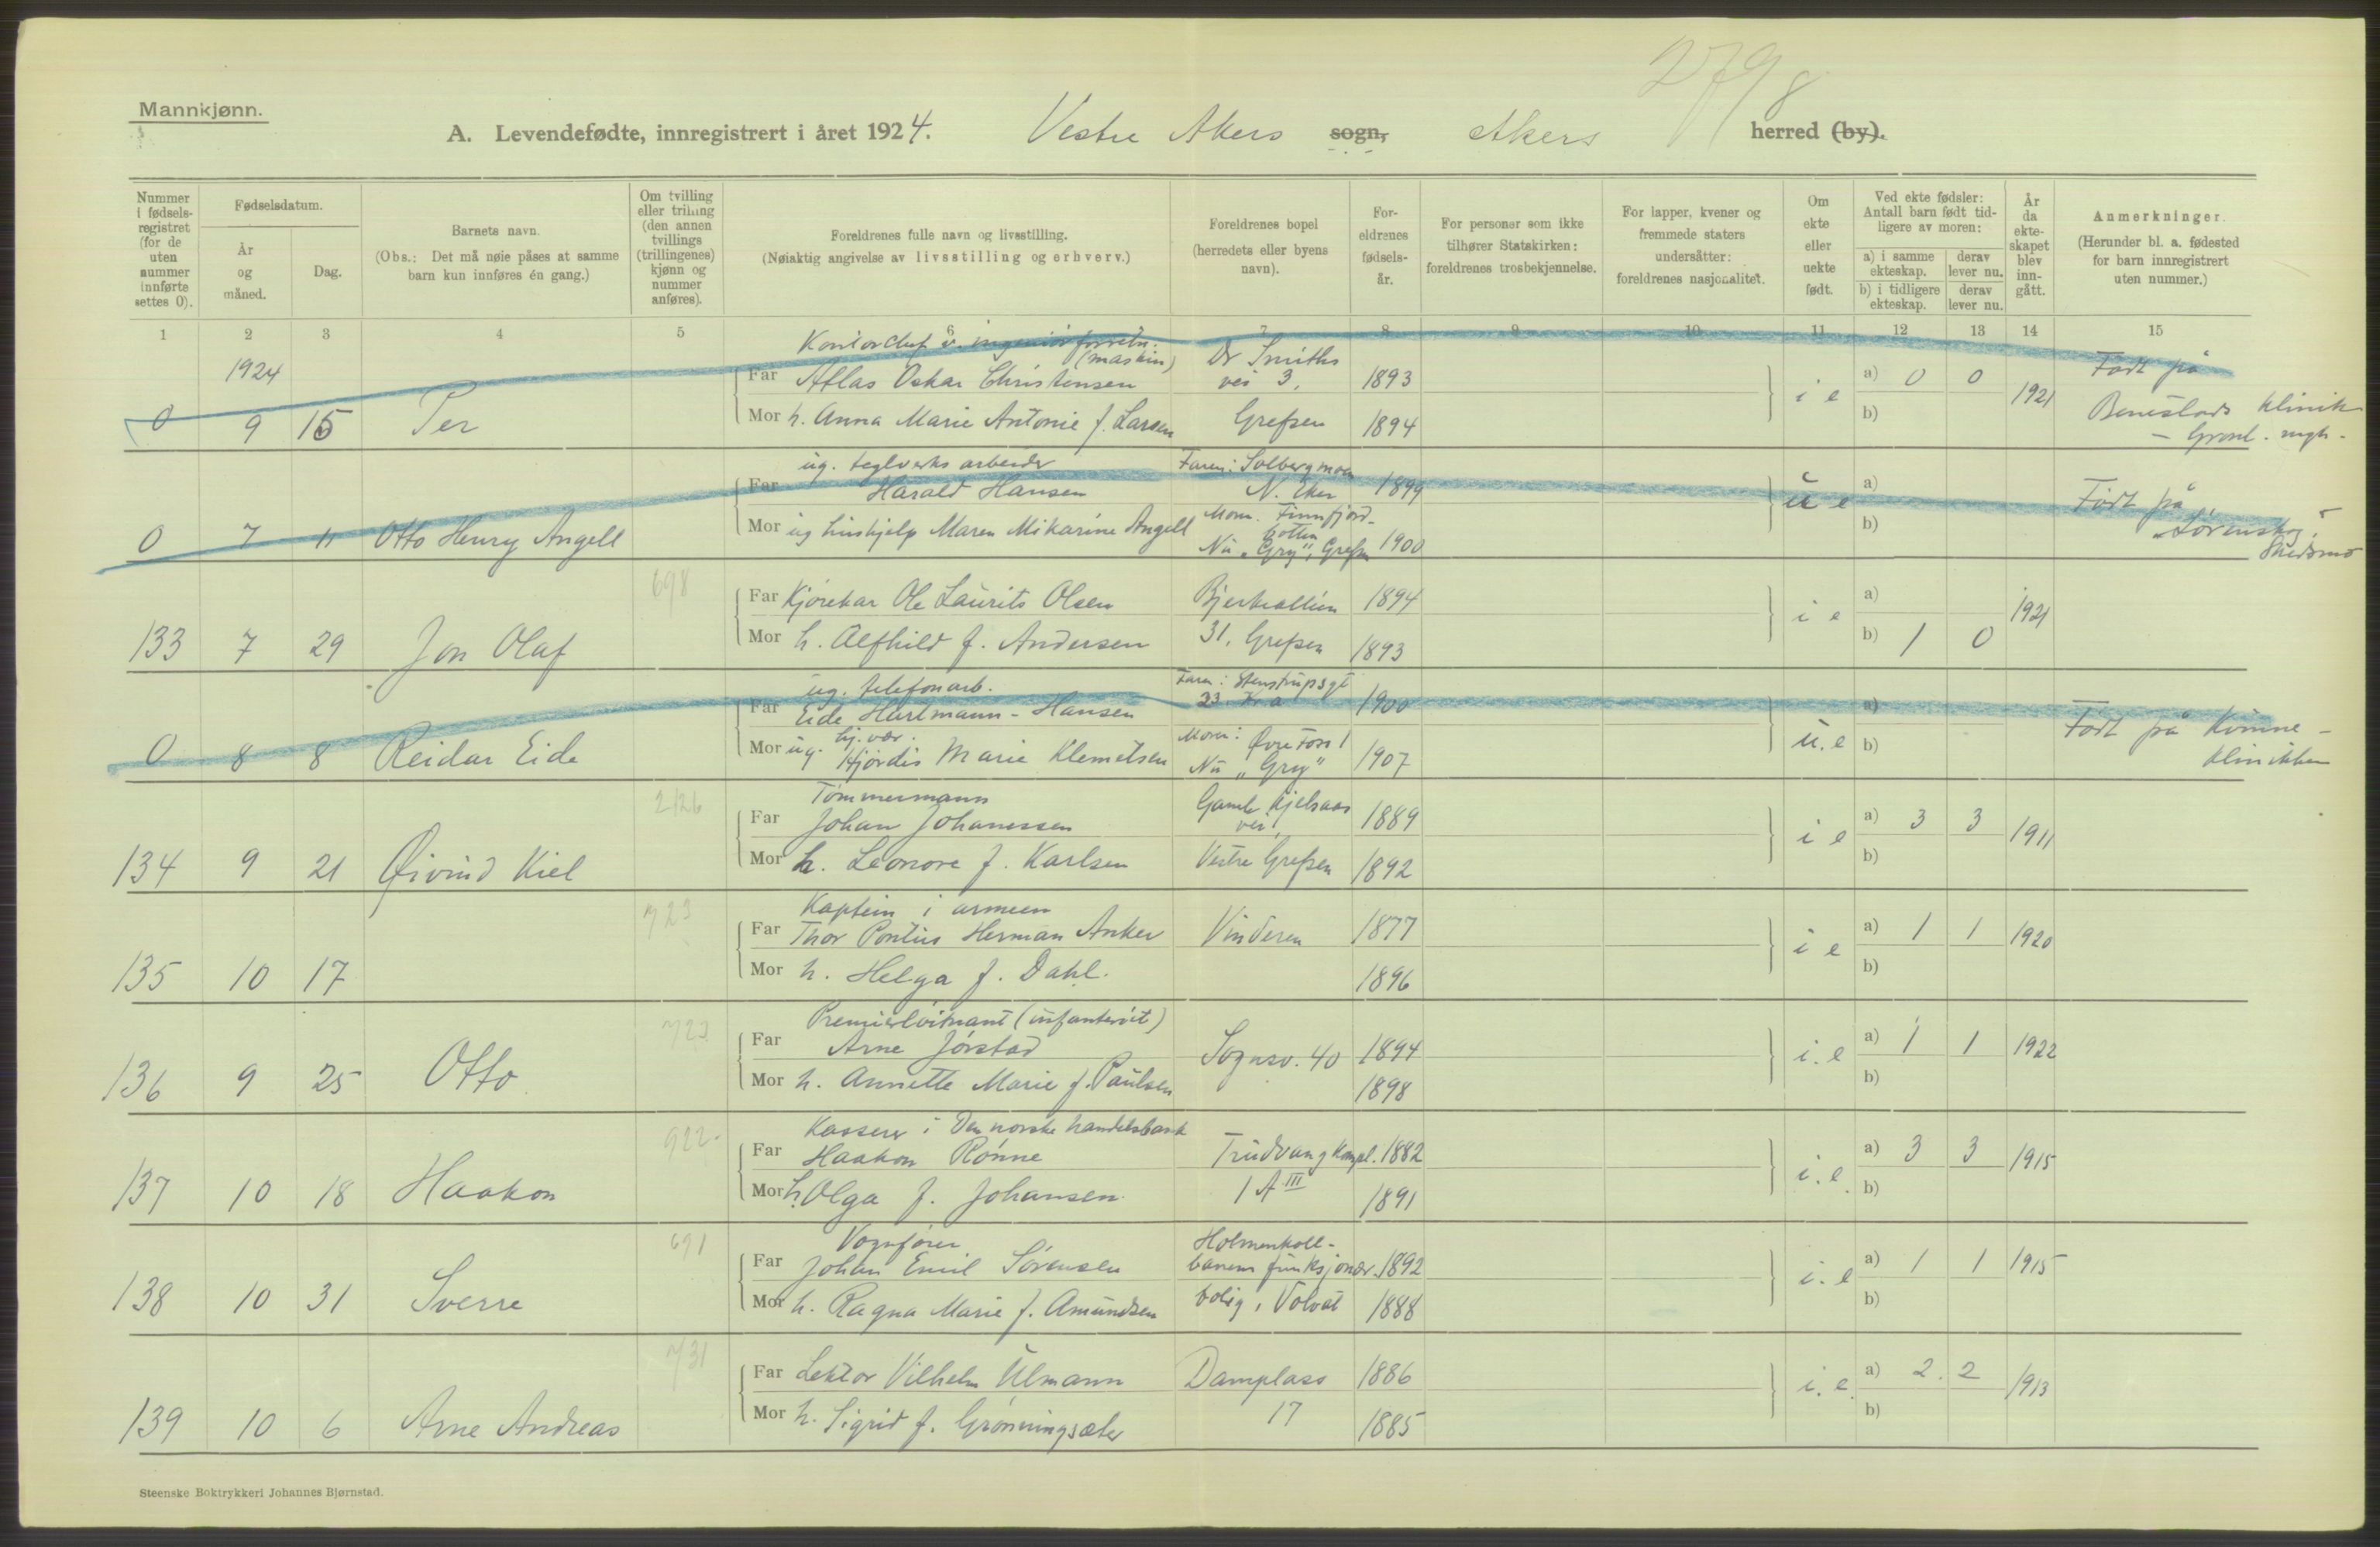 2798
Mannkjønn.
A. Levendefødte, innregistrert i året 1924. Vestre Akers sogn, Akers herred (by).
Nummer i fødsels-registret (for de uten nummer innførte settes 0).
Fødselsdatum.
År og måned.
Dag.
Barnets navn.
(Obs.: Det må nøie påses at samme barn kun innføres én gang.)
Om tvilling eller trilling (den annen tvillings (trillingenes) kjønn og nummer anføres).
Foreldrenes fulle navn og livsstilling.
(Nøiaktig angivelse av livsstilling og erhverv.)
Foreldrenes bopel
(herredets eller byens navn).
For-eldrenes fødsels-år.
For personer som ikke tilhører Statskirken: foreldrenes trosbekjennelse.
For lapper, kvener og fremmede staters undersåtter: foreldrenes nasjonalitet.
Om ekte eller uekte født.
Ved ekte fødsler: Antall barn født tid-ligere av moren:
a) i samme ekteskap.
derav lever nu.
b) i tidligere ekteskap.
derav lever nu.
År da ekte-skapet blev inn-gått.
Anmerkninger.
(Herunder bl. a. fødested for barn innregistrert uten nummer.)
1 2 3 4 5 6 7 8 9 10 11 12 13 14 15
1924
Kontorchef v. ingeniørforretn. (maskin)
Far Atlas Oskar Christensen Dr Smiths vei 3, 1893
0 9 15 Per
Mor h. Anna Marie Antonie f. Larsen Grefsen 1894
i e a) 0 0 b) 1921
Født på
klinik
ug. teglverks arbeider
Far Harald Hansen Faren: Solbergmoen N. Eker 1899
0 7 11 Otto Henry Angell
Mor ug hushjelp Maren Mikarine Angell Mor. Finnfjordbotten
Nu "Gry", Grefsen 1900
u e a) b)
Født på
"Lørenskog" Skedsmo
698
Far Kjørekar Ole Laurits Olsen Bjerkealleen 1894
133 7 29 Jon Olaf
Mor h. Alfhild f. Andersen 31, Grefsen 1893
i e a) b) 1 0 1921
ug. telefonarb.
Far Eide Hartmann-Hansen Faren: Stenstrupsgt 23 Kr a 1900
0 8 8 Reidar Eide
Mor ug. hj. vær. Hjørdis Marie Klemetsen Moren: Øvre Foss 1
Nu "Gry" 1907
u. e a) b)
Født på Kvinne-
klinikken
2126
Tømmermann
Far Johan Johanessen Gamle Kjelsaas vei 1889
134 9 21 Øivind Kiel
Mor h. Leonore f. Karlsen Vestre Grefsen 1892
i e a) 3 3 b) 1911
723
Kaptein i armeen
Far Thor Pontus Herman Anker Vinderen 1877
135 10 17
Mor h. Helga f. Dahl. 1896
i e a) 1 1 b) 1920
723
Premierløitnant (infanteriet)
Far Arne Jørstad Sognsv. 40 1894
136 9 25 Otto
Mor h. Annette Marie f. Paulsen 1898
i. e a) 1 1 b) 1922
922.
Kasserer i Den norske handelsbank
Far Haakon Rønne Trudvang kompl. 1882
137 10 18 Haakon
Mor h. Olga f. Johansen. 1 A III 1891
i. e. a) 3 3 b) 1915
691
Vognfører
Far Johan Emil Sørensen Holmenkoll-
banens funksjonær. 1892
138 10 31 Sverre
Mor h. Ragna Marie f. Amundsen bolig, Volvat 1888
i. e a) 1 1 b) 1915
731
Far Lektor Vilhelm Ulmann Damplass 1886
139 10 6 Arne Andreas
Mor h. Sigrid f. Grønningsæter 17 1885
i. e. a) 2. 2 b) 1913
Steenske Boktrykkeri Johannes Bjørnstad.